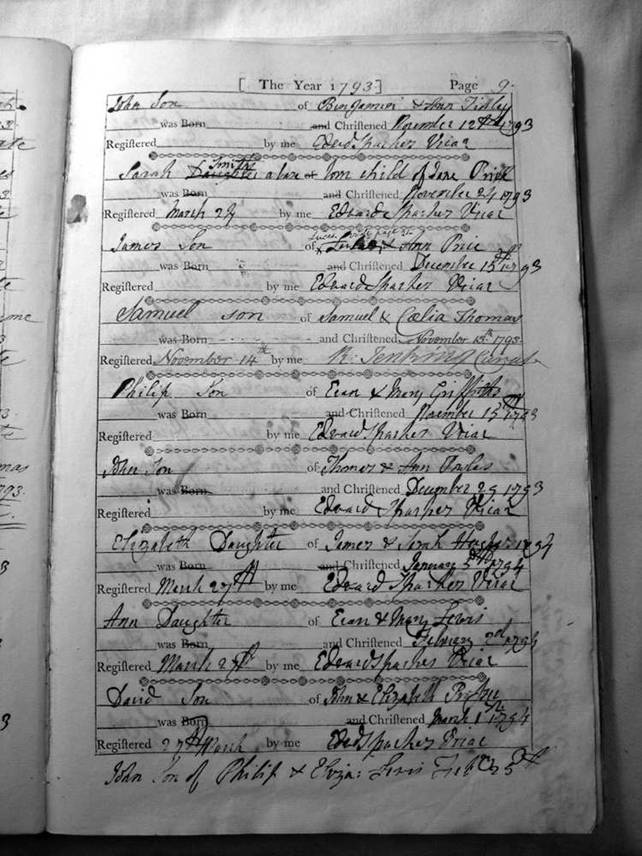 [ The Year 1793 ] Page 9.
John Son of Benjamin & Ann
was Born and Christened November 12th 1793
Registered by me Edwd Parker Vicar
Sarah Smith Daughter alive or born child of Jane Price
was Born and Christened November 24 1793
Registered March 24 by me Edward Parker Vicar
James Son of & Ann Price
was Born and Christened December 15th 1793
Registered by me Edward Parker Vicar
Samuel son of Samuel & Cælia Thomas
was Born and Christened November 1793
Registered November 14th by me R. Jenkins Curate
Philip Son of Evan & Mary Griffiths
was Born and Christened November 15th 1793
Registered by me Edward Parker Vicar
John Son of Thomas & Ann
was Born and Christened December 29 1793
Registered by me Edward Parker Vicar
Elizabeth Daughter of James & Sarah 1794
was Born and Christened January 5th 1794
Registered March 27th by me Edward Parker Vicar
Ann Daughter of Evan & Mary Lewis
was Born and Christened February 2d 1794
Registered March 27th by me Edward Parker Vicar
David Son of John & Elizabeth
was Born and Christened March 1st 1794
Registered 27th March by me Edwd Parker Vicar
John Son of Philip & Eliza: Lewis